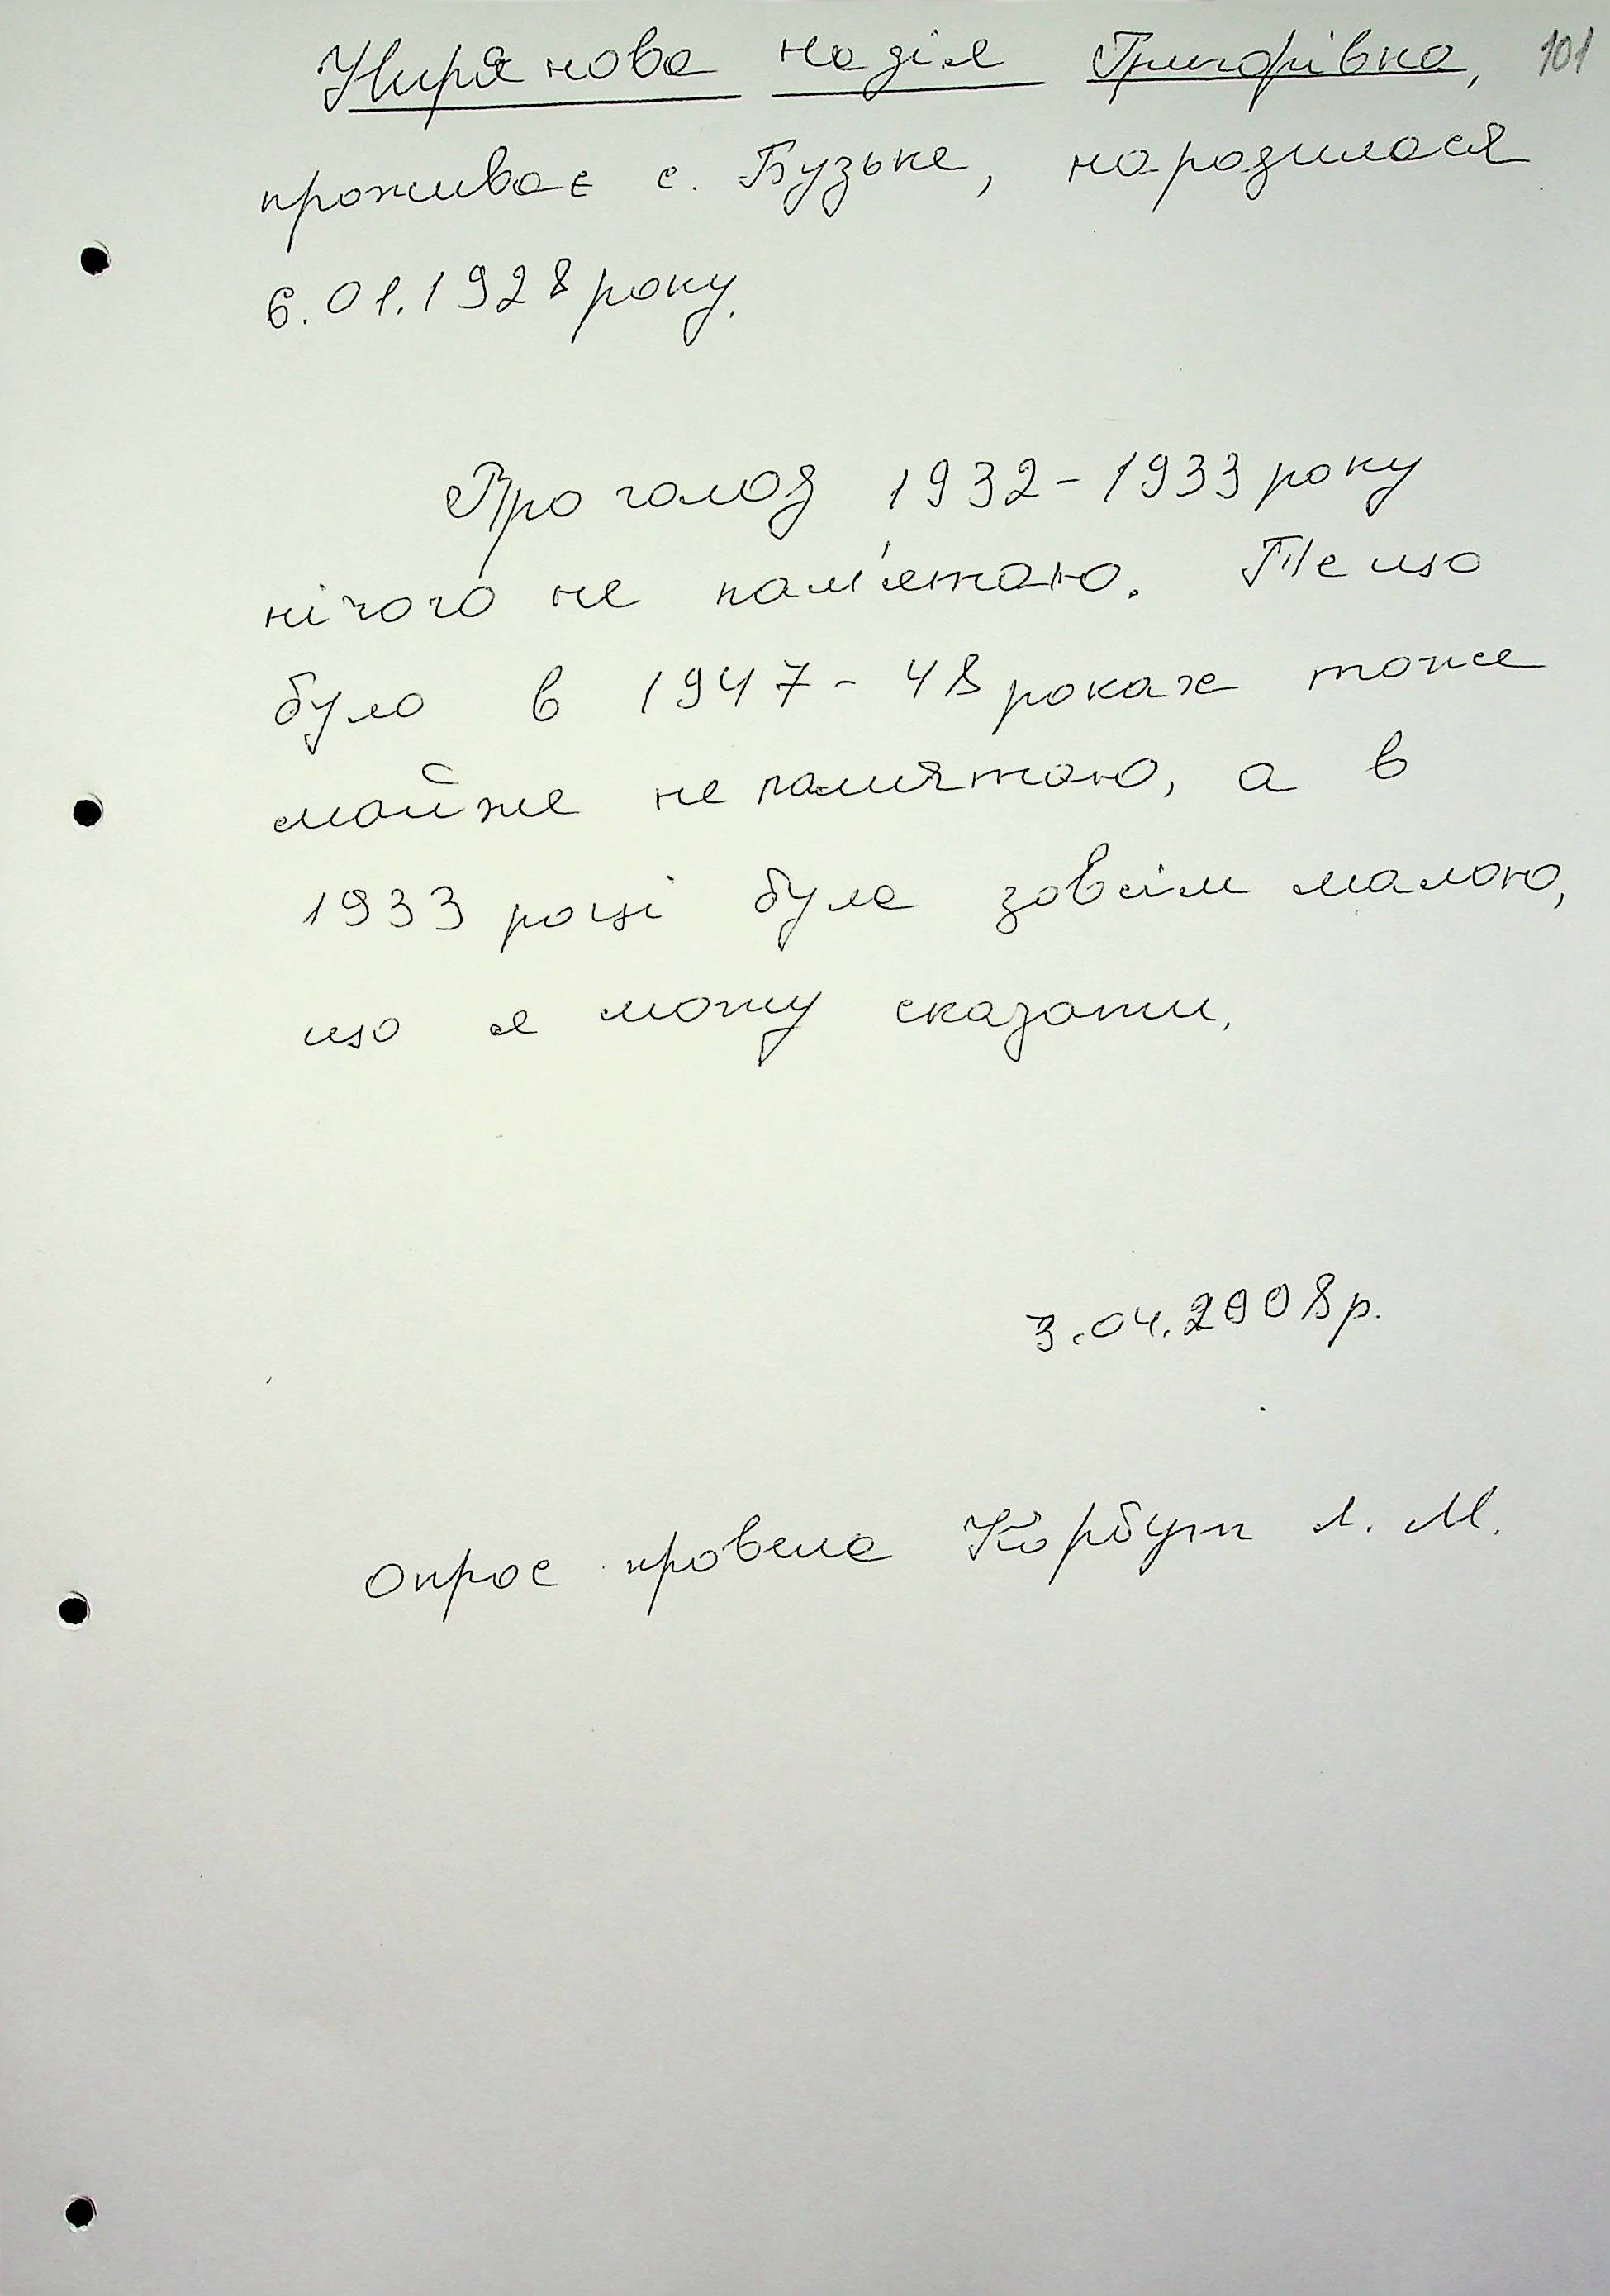 Кирянова Надія Григорівна, 101
проживає с. Бузьке, народилася
6.01.1928 року.
Про голод 1932-1933 року
нічого не пам'ятаю. Те що
було в 1947-48 роках тоже
майже не памятаю, а в
1933 році була зовсім малою,
що я можу сказати.
3.04.2008 р.
Опрос провела Корбут Л. М.